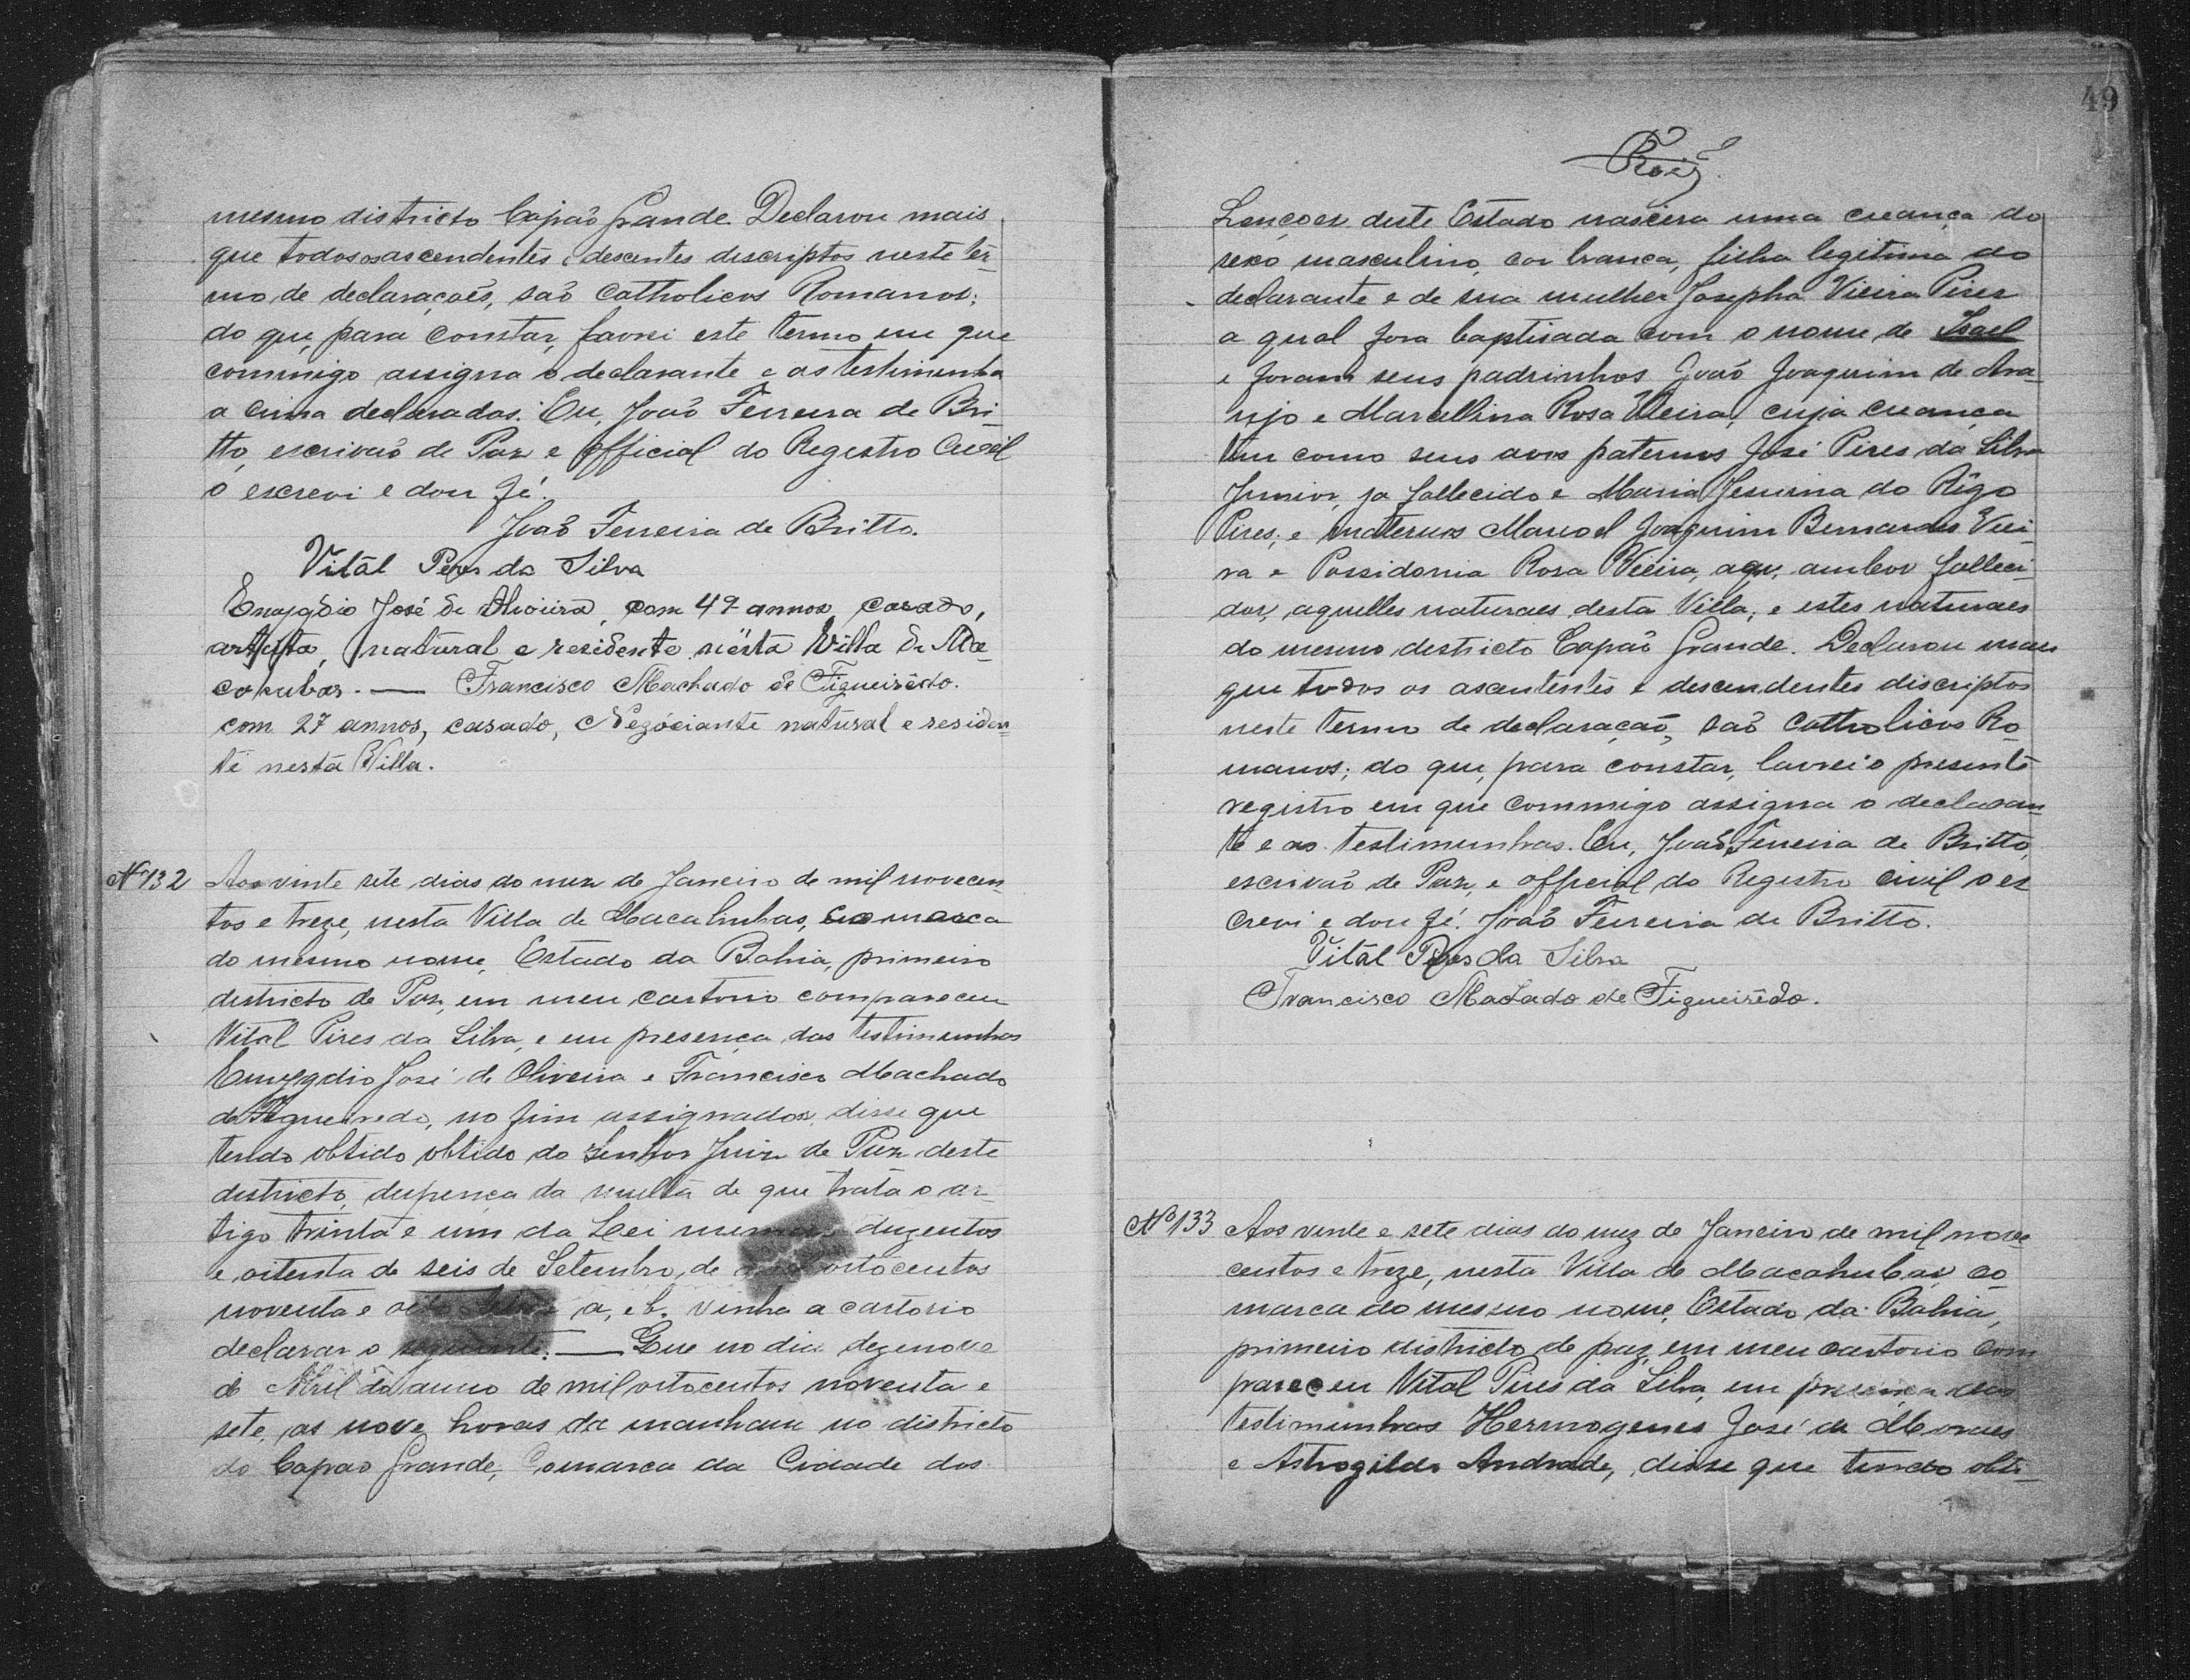 mesmo districto Capaõ Grande. Declarou mais
que todos os ascendentes e descentes descriptos neste ter-
mo de declaraçaões, saõ Catholicos Romanos;
do que para constar, lavrei este termo em que
commigo assigna o declarante e as testimunha
a cima declaradas. Eu, Joaõ Ferreira de Bri-
tto, escrivaõ de Paz e official do Registro Civil
o escrevi e dou fé.
Joaõ Ferreira de Britto.
Vital Pires da Silva
Emygdio José de Oliveira, com 49 annos, casado,
artista, natural e residente nésta Villa de Ma-
cahubas. — Francisco Machado de Figueirêdo.
com 27 annos, casado, Negóciante natural e residen-
te nesta Villa.
Nº 132 Aos vinte sete dias do mez de Janeiro de mil novecen
tos e treze, nesta Villa de Macahubas, Comarca
do mesmo nome, Estado da Bahia, primeiro
districto de Paz, em meu cartorio compareceu
Vital Pires da Silva, e em presença das testimunhas
Emygdio José de Oliveira e Francisco Machado
de Figueiredo, no fim assignados, disse que
tendo obtido obtido do Senhor Juiz de Paz deste
districto, dispença da multa de que trata o ar-
tigo trinta e um da Lei numero duzentos
e oitenta de seis de Setembro, de mil oitocentos
noventa e oito a, vinha a cartorio
declarar o seguinte: — Que no dia dezenove
de Abril do anno de mil oitocentos noventa e
sete, as nove horas da manham no districto
do Capaõ Grande, Comarca da Cidade dos
49
Lençoes deste Estado nascera uma creança do
sexo masculino, cor branca, filha legitima do
declarante e de sua mulher Josepha Vieira Pires
a qual fora baptisada com o nome de Isael
e foram seus padrinhos Joaõ Joaquim de Ara-
ujo e Marcellina Rosa Vieira, cuja creança
tem como seus avos paternos José Pires da Silva
Junior, ja fallecido e Maria Jesuina do Rêgo
Pires; e maternos Manoel Joaquim Bernardes Viei-
ra e Possidonia Rosa Vieira, ambos falleci-
dos, aquelles naturaes desta Villa, e estes naturaes
do mesmo destricto Capaõ Grande. Declarou mais
que todos os ascentêntes e descendentes discriptos
neste termo de declaraçaõ, saõ Catholicos Ro
manos; do que, para constar, lavrei o presente
registro em que commigo assigna o declaran-
te e as testimunhas. Eu, Joaõ Ferreira de Britto,
escrivaõ de Paz, e official do Registro civil o es
crevi e dou fé. Joaõ Ferreira de Britto.
Vital Pires da Silva
Francisco Machado de Figueirêdo.
Nº 133 Aos vinte e sete dias do mez de Janeiro de mil nove
centos e treze, nesta Villa de Macahubas co-
marca do mesmo nome, Estado da Bahia,
primeiro districto de paz, em meu cartorio com
pareceu Vital Pires da Silva, em presença das
testimunhas Hermogenes José de Moraes
e Astrogildo Andrade, disse que tendo obti-